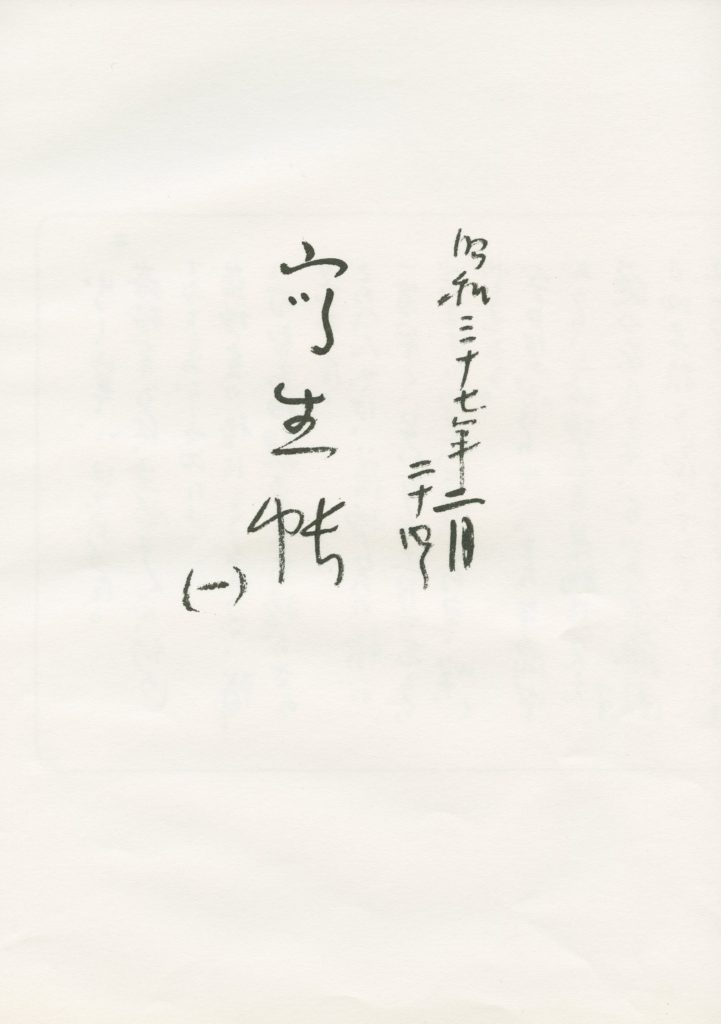 昭和三十七年二月
二十四
写生帖
(一)